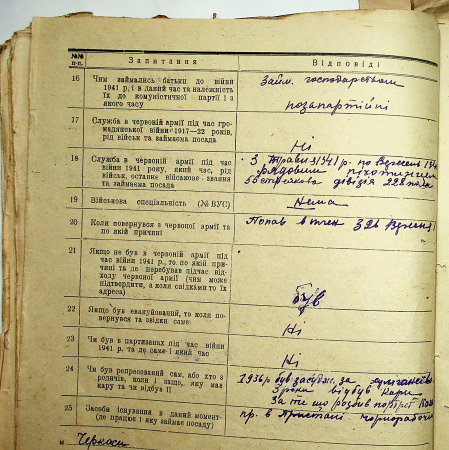 №№ п-п.
Запитання
Відповіді
16
Чим займались батьки до війни
1941 р, і в даний час та належність
їх до комуністичної партії і з
якого часу
Займ. господарством
позапартійні
17
Служба в червоній армії під час гро-
мадянської війни 1917—22 років,
рід військ та займаєма посада
Ні
18
Служба в червоній армії під час
війни 1941 року, який час, рід
військ, останнє військове звання
та займаєма посада
З Травня 1941 р. по Вересень
рядовим піхотинцем
дівізія 228
19
Військова спеціяльність (№ ВУС)
Нема
20
Коли повернувся з червоної армії та
по якій причині
Попав в плен
21
Якщо не був в червоній армії під
час війни 1941 р., то по якій при-
чині та де перебував підчас від-
ходу червоної армії (чим може
підтвердити, а коли свідками то їх
адреса)
був
22
Якщо був евакуйований, то коли по-
вернувся та звідки саме
Ні
23
Чи був в партизанах під час війни
1941 р. та де саме і який час
Ні
24
Чи був репресований сам, або хто з
родичів, коли і защо, яку мав
кару та чи відбув її
1936р був засудж. за хуліганство
3 роки відбув кари
За те що розбив портрет
25
Засоби існування в даний момент-
(де працює і яку займає посаду)
пр. в Пристані чорноробочим
м. Черкаси